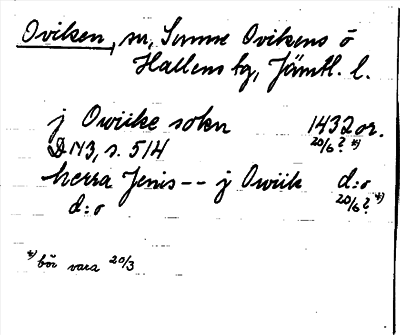 Oviken, sn, Sunne Ovikens o
Hallens tg, Jämtl. l.
j Owiike sokn 1432 or.
DN3, s. 514 20/6? *)
herra Jenis -- j Owiik d:o
d:o 20/6? *)
*) bör vara 20/3